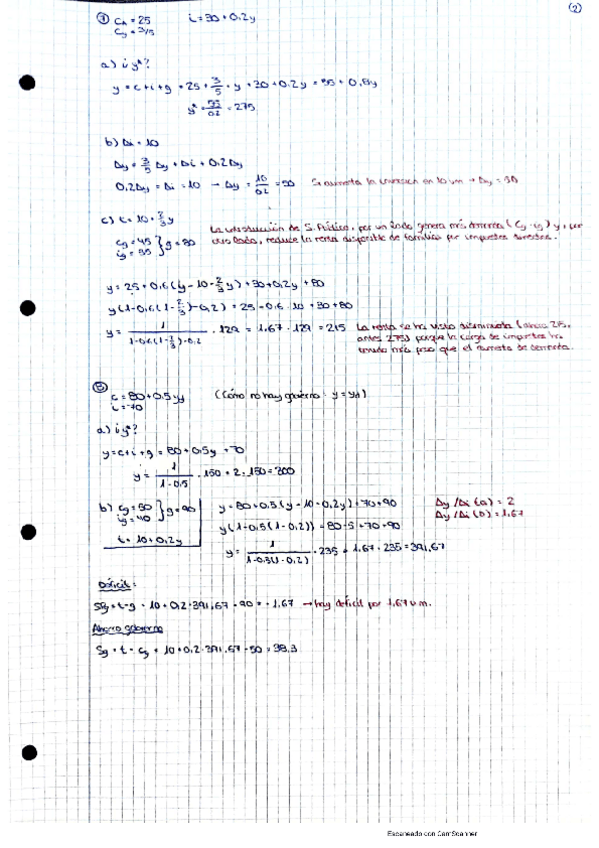 (2)
⑦ CA = 25 i = 30 + 0,2y
Cy = 3/5
a) ¿ yᵉ?
y = c+i+g = 25 + 3/5 · y + 30 + 0,2y = 55 + 0,8y
yᵉ = 55/0,2 = 275
b) Δi = 10
Δy = 3/5 Δy + Δi + 0,2Δy
0,2Δy = Δi = 10 → Δy = 10/0,2 = 50 Si aumenta la inversión en 10 um → Δy = 50
c) t = 10 + 2/3 y
La introducción de S. Público, por un lado genera más demanda (Cg · ig) y, por
cg = 45 } g = 80
ig = 35
otro lado, reduce la renta disponible de familias por impuestos directos.
y = 25 + 0,6 (y - 10 - 2/3 y) + 30 + 0,2y + 80
y (1 - 0,6 (1 - 2/3) - 0,2) = 25 - 0,6 · 10 + 30 + 80
y = 1/(1 - 0,6 (1 - 2/3) - 0,2) · 129 = 1,67 · 129 = 215 La renta se ha visto disminuida (ahora 215,
antes 275) porque la carga de impuestos ha
tenido más peso que el aumento de demanda.
⑧
c = 80 + 0,5 yd (Como no hay gobierno: y = yd)
i = 70
a) ¿ yᵉ?
y = c + i + g = 80 + 0,5y + 70
y = 1/(1 - 0,5) · 150 = 2 · 150 = 300
b) cg = 50 } g = 90 y = 80 + 0,5 (y - 10 - 0,2y) + 70 + 90 Δy / Δi (a) = 2
ig = 40 y (1 - 0,5 (1 - 0,2)) = 80 - 5 + 70 + 90 Δy / Δi (b) = 1,67
t = 10 + 0,2y y = 1/(1 - 0,5(1 - 0,2)) · 235 = 1,67 · 235 = 391,67
Déficit:
SPg = t - g = 10 + 0,2 · 391,67 - 90 = - 1,67 → hay déficit por 1,67 u.m.
Ahorro gobierno
Sg = t - cg = 10 + 0,2 · 391,67 - 50 = 38,3
Escaneado con CamScanner